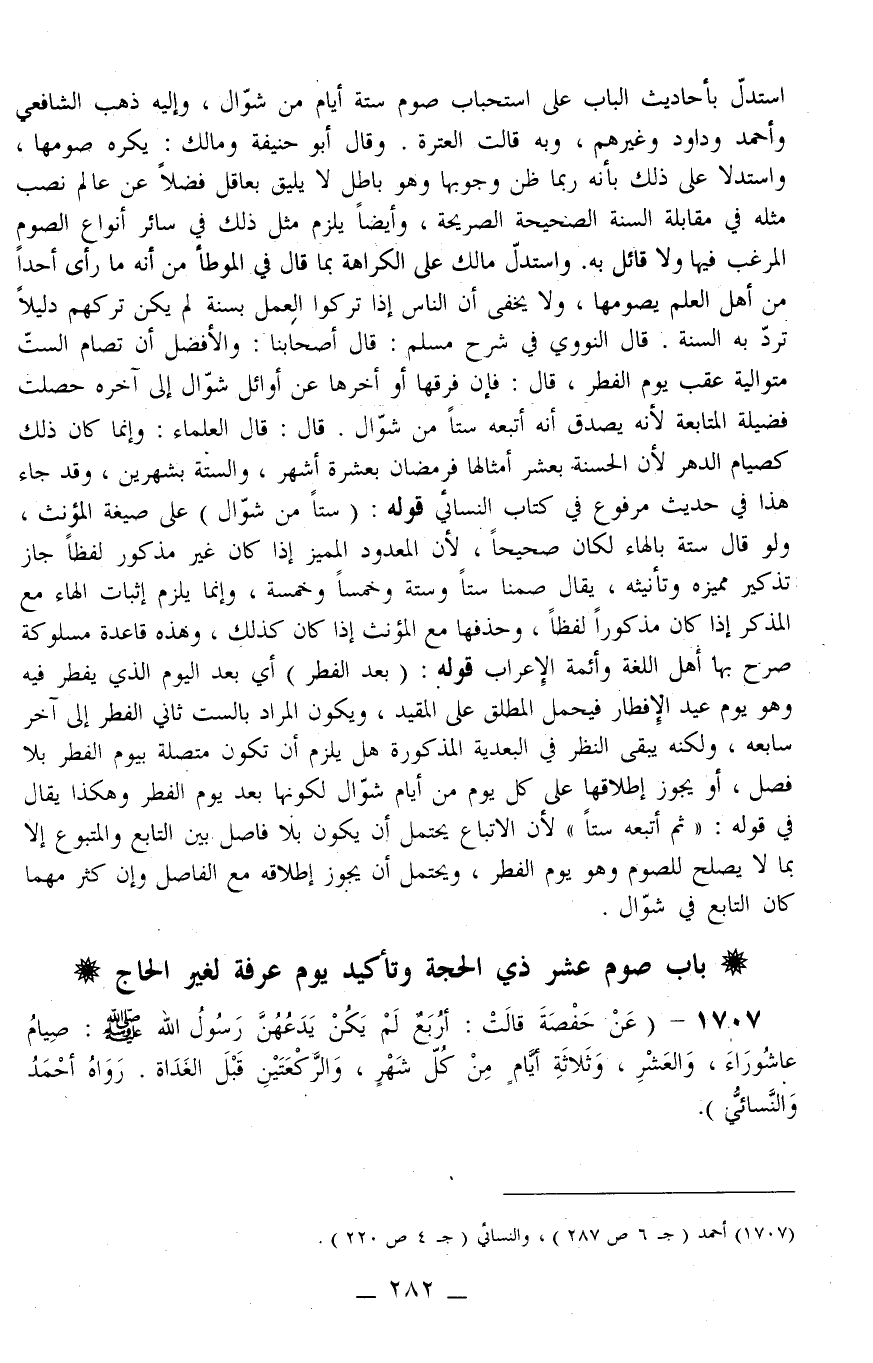 استدلّ بأحاديث الباب على استحباب صوم ستة أيام من شوّال ، وإليه ذهب الشافعي
وأحمد وداود وغيرهم ، وبه قالت العترة . وقال أبو حنيفة ومالك : يكره صومها ،
واستدلا على ذلك بأنه ربما ظن وجوبها وهو باطل لا يليق بعاقل فضلاً عن عالم نصب
مثله في مقابلة السنة الصحيحة الصريحة ، وأيضاً يلزم مثل ذلك في سائر أنواع الصوم
المرغب فيها ولا قائل به. واستدلّ مالك على الكراهة بما قال في الموطأ من أنه ما رأى أحداً
من أهل العلم يصومها ، ولا يخفى أن الناس إذا تركوا العمل بسنة لم يكن تركهم دليلاً
تردّ به السنة . قال النووي في شرح مسلم : قال أصحابنا : والأفضل أن تصام الستّ
متوالية عقب يوم الفطر ، قال : فإن فرقها أو أخرها عن أوائل شوّال إلى آخره حصلت
فضيلة المتابعة لأنه يصدق أنه أتبعه ستاً من شوّال . قال : قال العلماء : وإنما كان ذلك
كصيام الدهر لأن الحسنة بعشر أمثالها فرمضان بعشرة أشهر ، والستة بشهرين ، وقد جاء
هذا في حديث مرفوع في كتاب النسائي قوله : ( ستاً من شوّال ) على صيغة المؤنث ،
ولو قال ستة بالهاء لكان صحيحاً ، لأن المعدود المميز إذا كان غير مذكور لفظاً جاز
تذكير مميزه وتأنيثه ، يقال صمنا ستاً وستة وخمساً وخمسة ، وإنما يلزم إثبات الهاء مع
المذكر إذا كان مذكوراً لفظاً ، وحذفها مع المؤنث إذا كان كذلك ، وهذه قاعدة مسلوكة
صرح بها أهل اللغة وأئمة الإعراب قوله : ( بعد الفطر ) أي بعد اليوم الذي يفطر فيه
وهو يوم عيد الإفطار فيحمل المطلق على المقيد ، ويكون المراد بالست ثاني الفطر إلى آخر
سابعه ، ولكنه يبقى النظر في البعدية المذكورة هل يلزم أن تكون متصلة بيوم الفطر بلا
فصل ، أو يجوز إطلاقها على كل يوم من أيام شوّال لكونها بعد يوم الفطر وهكذا يقال
في قوله : « ثم أتبعه ستاً » لأن الاتباع يحتمل أن يكون بلا فاصل بين التابع والمتبوع إلا
بما لا يصلح للصوم وهو يوم الفطر ، ويحتمل أن يجوز إطلاقه مع الفاصل وإن كثر مهما
كان التابع في شوّال .
باب صوم عشر ذي الحجة وتأكيد يوم عرفة لغير الحاج
١٧٠٧ – ( عَنْ حَفْصَةَ قالَتْ : أرْبَعٌ لَمْ يَكُنْ يَدَعُهُنَّ رَسُولُ الله ﷺ : صِيامُ
عاشُورَاءَ ، وَالعَشْرِ ، وَثَلاثَةِ أيَّامٍ مِنْ كُلّ شَهْرٍ ، وَالرَّكْعَتَيْنِ قَبْلَ الغَدَاة . رَوَاهُ أحْمَدُ
وَالنَّسائيُّ ).
(١٧٠٧) أحمد ( جـ ٦ ص ٢٨٧ ) ، والنسائي ( جـ ٤ ص ٢٢٠ ) .
— ٢٨٢ —